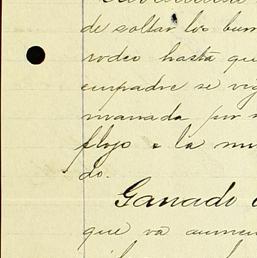 de soltar los bur
rodeo hasta qu
empadre se vig
manada por
flojo o la mu
do.
Ganado
que va aumen